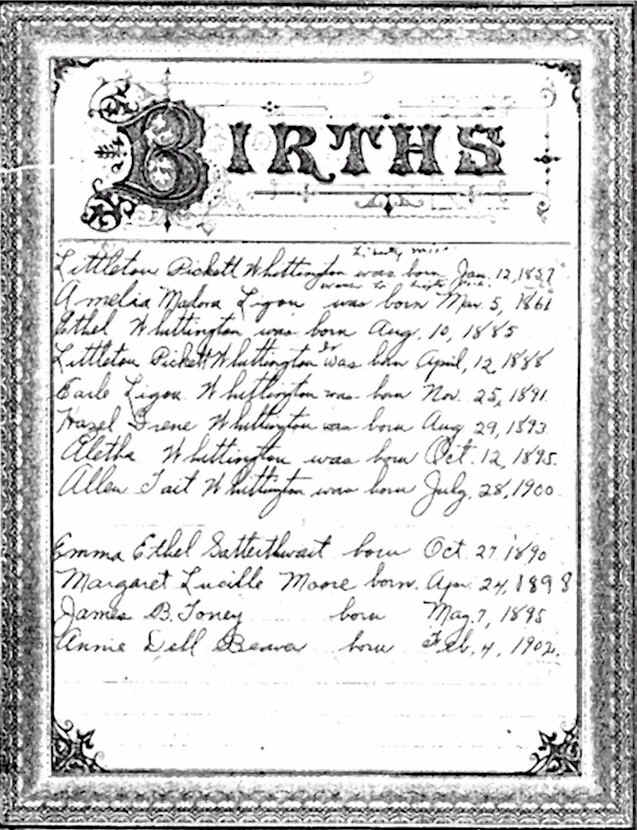 BIRTHS
Liberty Miss
Littleton Pickett Whittington was born Jan. 12, 1857
Amelia Madora Ligon was born Mar. 5, 1861
Ethel Whittington was born Aug. 10, 1885
Littleton Pickett Whittington Jr was born April, 12, 1888
Earle Ligon Whittington was born Nov. 25, 1891
Hazel Irene Whittington was born Aug 29, 1893
Aletha Whittington was born Oct. 12, 1895.
Allen Tait Whittington was born July, 28, 1900.
Emma Ethel Satterthwait born Oct 27 1890
Margaret Lucille Moore born. Apr. 24, 1898
James B. Toney born May. 7, 1895
Annie Dell Beaver born Feb. 4, 1902.